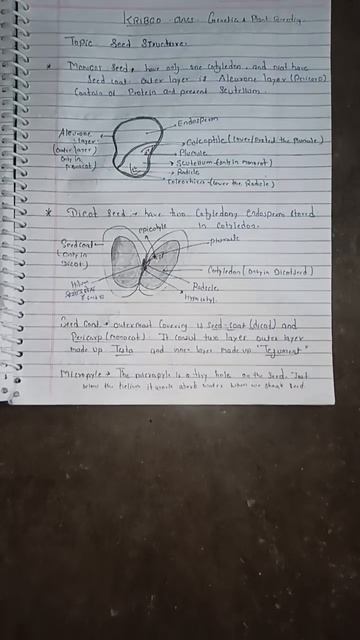 KRIBCO Genetics & Plant Breeding
Topic Seed Structure:
* Monocot Seed, have only one cotyledon, and not have
Seed coat outer layer is Aleurone layer (Pericarp)
Contain of Protein and present Scutellum.
Endosperm
Aleurone layer
(Outer layer)
Only in monocot)
Coleoptile (Cover/Protect the Plumule)
Plumule
Scutellum (only in monocot)
Radicle
Coleorhiza (Cover the Radicle)
* Dicot Seed → have two Cotyledony, endosperm stored
in Cotyledon.
epicotyle
Seed coat
(only in
Dicot)
Plumule
Cotyledon (Only in Dicot seed)
Hilum
Radicle
Hypocotyl.
Seed Coat → outermost Covering is Seed-coat (dicot) and
Pericarp (monocot). It consist two layer outer layer
made up Testa and inner layer made up "Tegument"
Micropyle → The micropyle is a tiny hole on the seed. Just
below the hilum it absorb water when we soak seed.